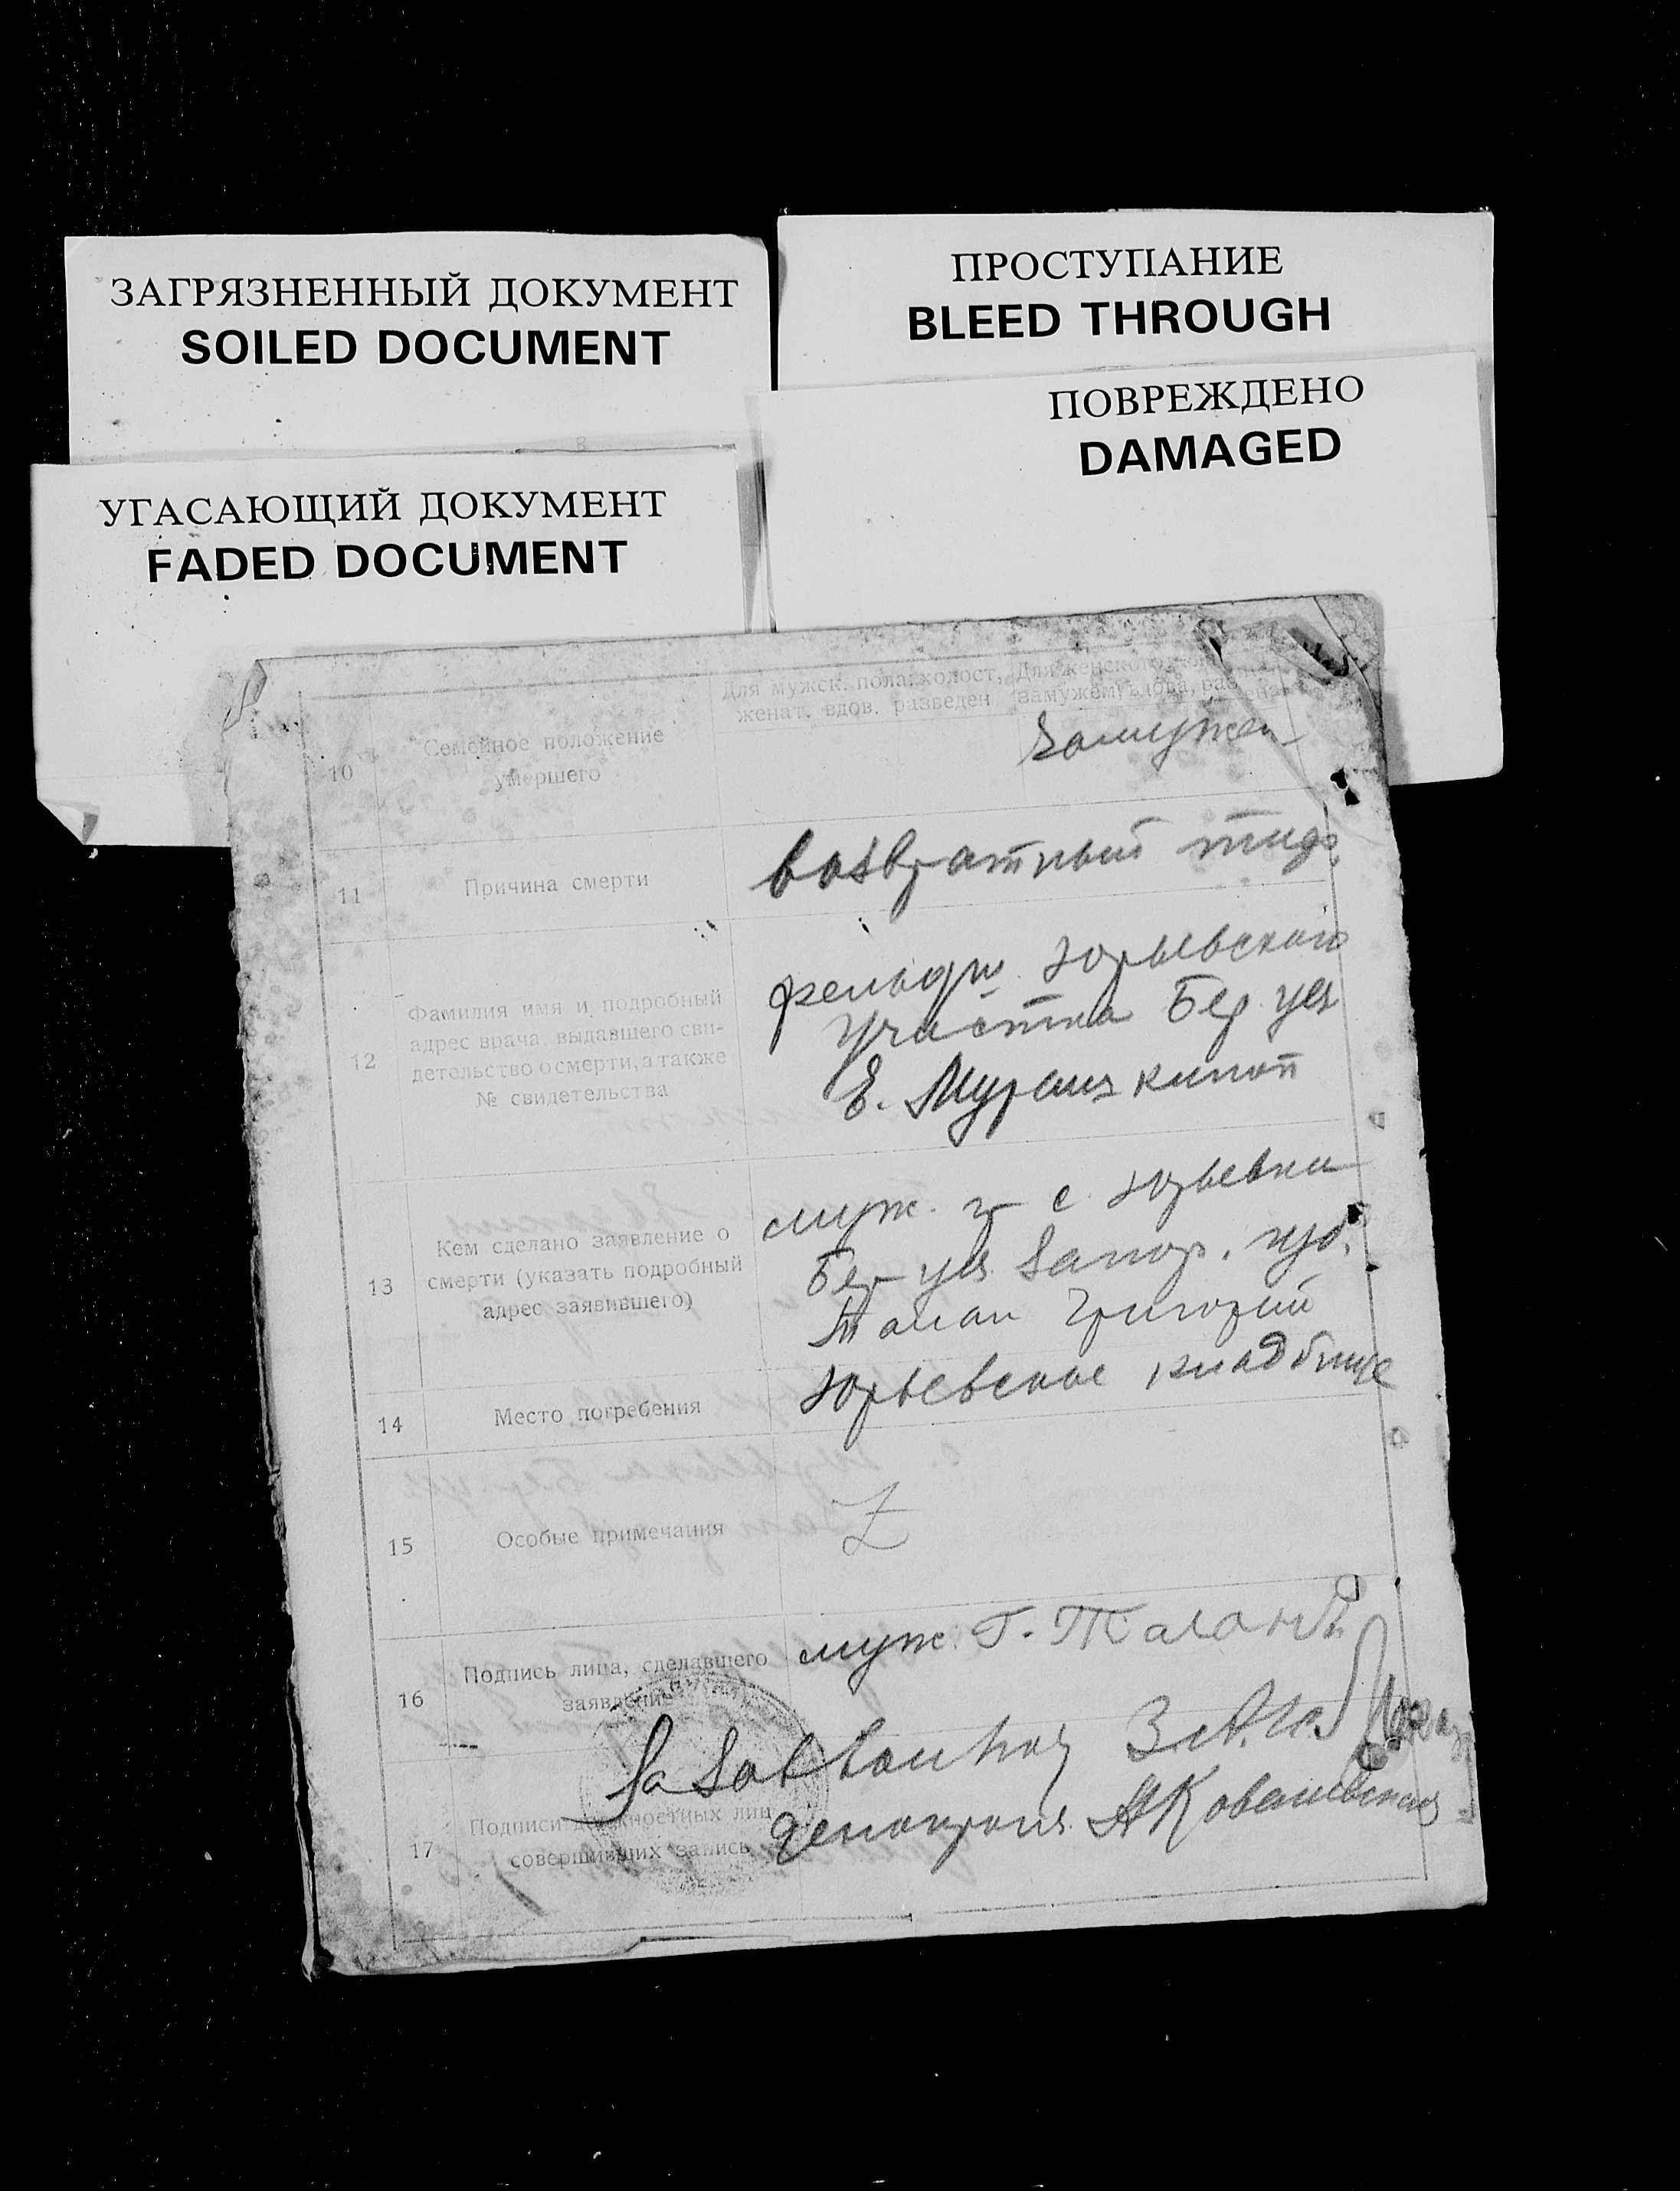 ЗАГРЯЗНЕННЫЙ ДОКУМЕНТ
SOILED DOCUMENT
ПРОСТУПАНИЕ
BLEED THROUGH
ПОВРЕЖДЕНО
DAMAGED
УГАСАЮЩИЙ ДОКУМЕНТ
FADED DOCUMENT
Для мужск. пола: холост,
женат, вдов. разведен
Для женского
замужем, вдова,
10
Семейное положение
умершего
Замужем
11
Причина смерти
возвратный тиф
12
Фамилия имя и подробный
адрес врача, выдавшего сви-
детельство о смерти, а также
№ свидетельства
фельдш. Юрьевской
участка Бер. уез
Е.
13
Кем сделано заявление о
смерти (указать подробный
адрес заявившего)
муж. гр с. Юрьевка
Бер уез. Запор. губ.
Талан Григорий
14
Место погребения
Юрьевское кладбище
15
Особые примечания
Z
16
Подпись лица, сделавшего
заявление
муж. Г. Таланъ
17
Подписи должностных лиц
совершивших запись
За Завболинод
делопроиз. Ковалевская